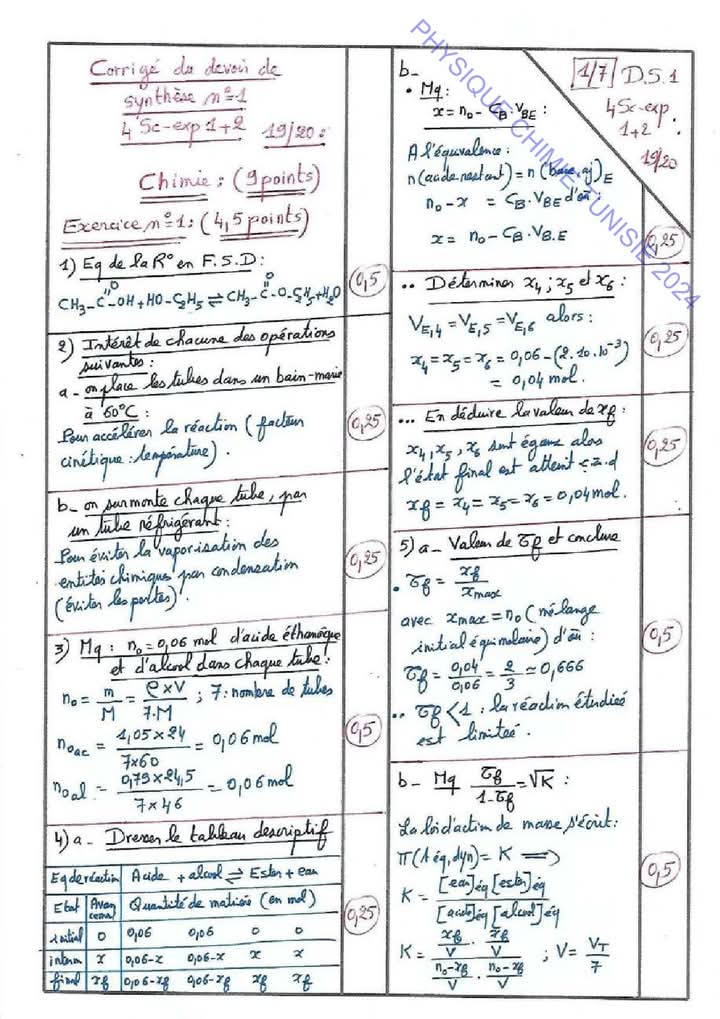 Corrigé du devoir de
synthèse n°1
4 Sc-exp 1+2 19/20 :
Chimie : (9 points)
Exercice n°1 : (4,5 points)
1) Eq de la R° en F.S.D :
CH3-C(=O)-OH + HO-C2H5 ⇌ CH3-C(=O)-O-C2H5 + H2O
0,5
2) Intérêt de chacune des opérations
suivantes :
a - on place les tubes dans un bain-marie
à 60°C :
Pour accélérer la réaction (facteur
cinétique : température).
0,25
b - on surmonte chaque tube, par
un tube réfrigérant :
Pour éviter la vaporisation des
entités chimiques par condensation
(éviter les pertes).
0,25
3) Mq : n0 = 0,06 mol d'acide éthanoïque
et d'alcool dans chaque tube :
n0 = m/M = ρ×V/7.M ; 7 : nombre de tubes
n0ac = 1,05×24/7×60 = 0,06 mol
n0al = 0,79×24,5/7×46 = 0,06 mol
0,5
4) a - Dresser le tableau descriptif
Eq de réaction Acide + alcool ⇌ Ester + eau
Etat Avancement Quantité de matière (en mol)
initial 0 0,06 0,06 0 0
interm x 0,06-x 0,06-x x x
final xf 0,06-xf 0,06-xf xf xf
0,25
b -
• Mq :
x = n0 - CB.VBE :
A l'équivalence :
n(acide restant) = n(base aj)E
n0 - x = CB.VBE d'où :
x = n0 - CB.VB.E
0,25
1/7 D.S.1
4 Sc-exp
1+2
19/20
•• Déterminer x4 ; x5 et x6 :
VE,4 = VE,5 = VE,6 alors :
x4 = x5 = x6 = 0,06 - (2.10.10^-3)
= 0,04 mol.
0,25
••• En déduire la valeur de xf :
x4, x5, x6 sont égaux alors
l'état final est atteint c.à.d
xf = x4 = x5 = x6 = 0,04 mol.
0,25
5) a - Valeur de τf et conclure
• τf = xf/xmax
avec xmax = n0 (mélange
initial équimolaire) d'où :
τf = 0,04/0,06 = 2/3 ≃ 0,666
•• τf < 1 : la réaction étudiée
est limitée.
0,5
b - Mq τf/1-τf = √K :
La loi d'action de masse s'écrit :
π(éq,dyn) = K ⟹
K = [eau]éq [ester]éq/[acide]éq [alcool]éq
K = xf/V . xf/V / n0-xf/V . n0-xf/V ; V = VT/7
0,5
PHYSIQUE CHIMIE TUNISIE 2024